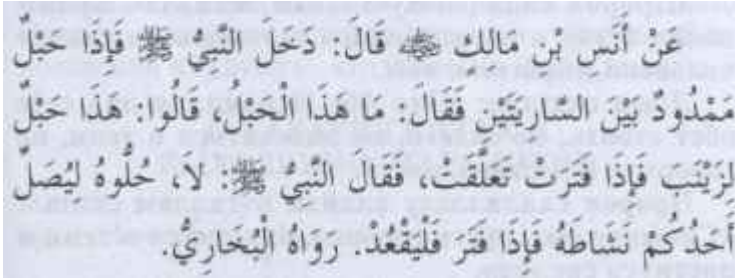 عَنْ أَنَسِ بْنِ مَالك ﷺ قَالَ: دَخَلَ النَّبِيُّ ﷺ فَإِذَا حَبْلٌ
مَمْدُودٌ بَيْنَ السَّارِيَتَيْنِ فَقَالَ: مَا هَذَا الْحَبْلُ، قَالُوا: هَذَا حَبْلٌ
لِزَيْنَبَ فَإِذَا فَتَرَتْ تَعَلَّقَتْ، فَقَالَ النَّبِيُّ ﷺ: لاَ، حُلُّوهُ لِيُصَلِّ
أَحَدُكُمْ نَشَاطَهُ فَإِذَا فَتَرَ فَلْيَقْعُدْ. رَوَاهُ الْبُخَارِيُّ.